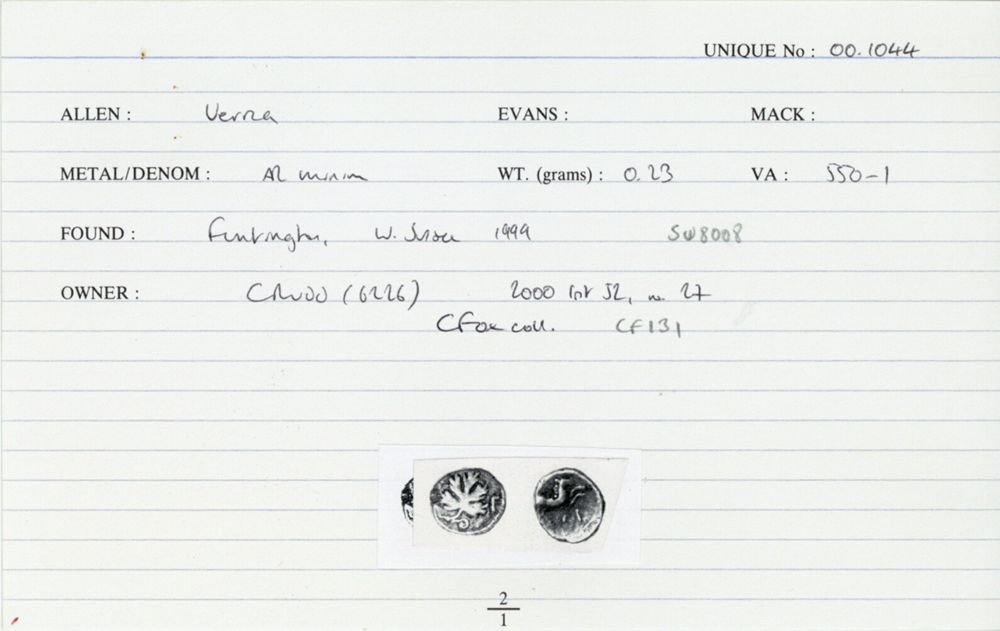 UNIQUE No : 00.1044
ALLEN : Verica EVANS : MACK :
METAL/DENOM : AR minim WT. (grams) : 0.23 VA : 550-1
FOUND : Funtington, W. Sussex 1999 SW8008
OWNER : 2000 52, no. 27
C Fox coll. CF131
2
1